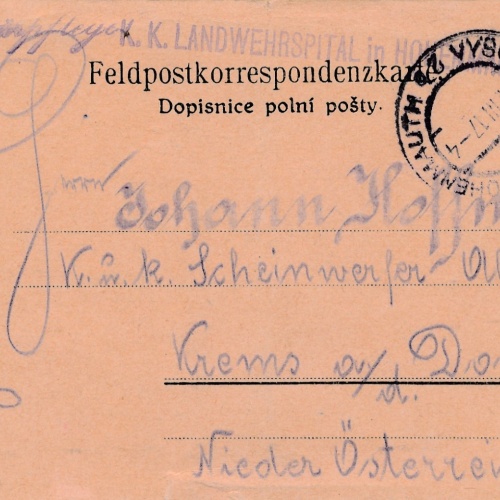 K. K. LANDWEHRSPITAL in HOHENMAUTH
Feldpostkorrespondenzkarte
Dopisnice polní pošty.
HOHENMAUTH
VYSO
17 -4
Herrn
Johann Hoffm
K. u. k. Scheinwerfer-A
Krems a/d. Don
Nieder Österrei